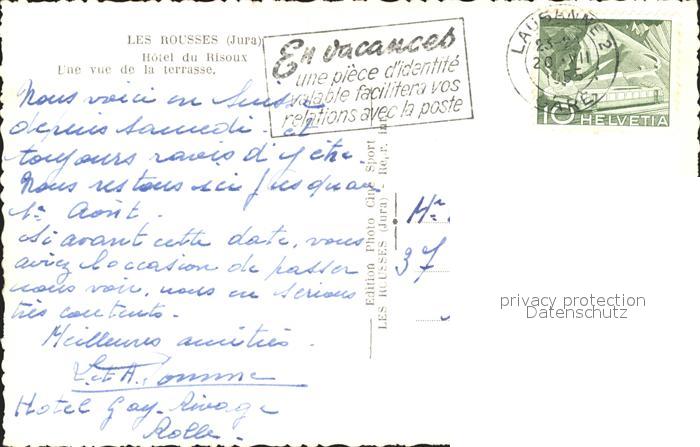 LES ROUSSES (Jura)
Hôtel du Risoux
Une vue de la terrasse.
En vacances
une pièce d'identité
valable facilitera vos
relations avec la poste
LAUSANNE 2
GARE
10 HELVETIA
Nous voici en Suisse
depuis samedi. Et
toujours ravis d'y être.
Nous restons ici jusqu'au
1er Août.
Si avant cette date, vous
aviez l'occasion de passer
nous voir, nous en serions
très contents.
Meilleures amitiés.
Hotel Gay-Rivage
Rolle.
Edition Photo Ciné Sport
LES ROUSSES (Jura)
Mr.
37
privacy protection
Datenschutz